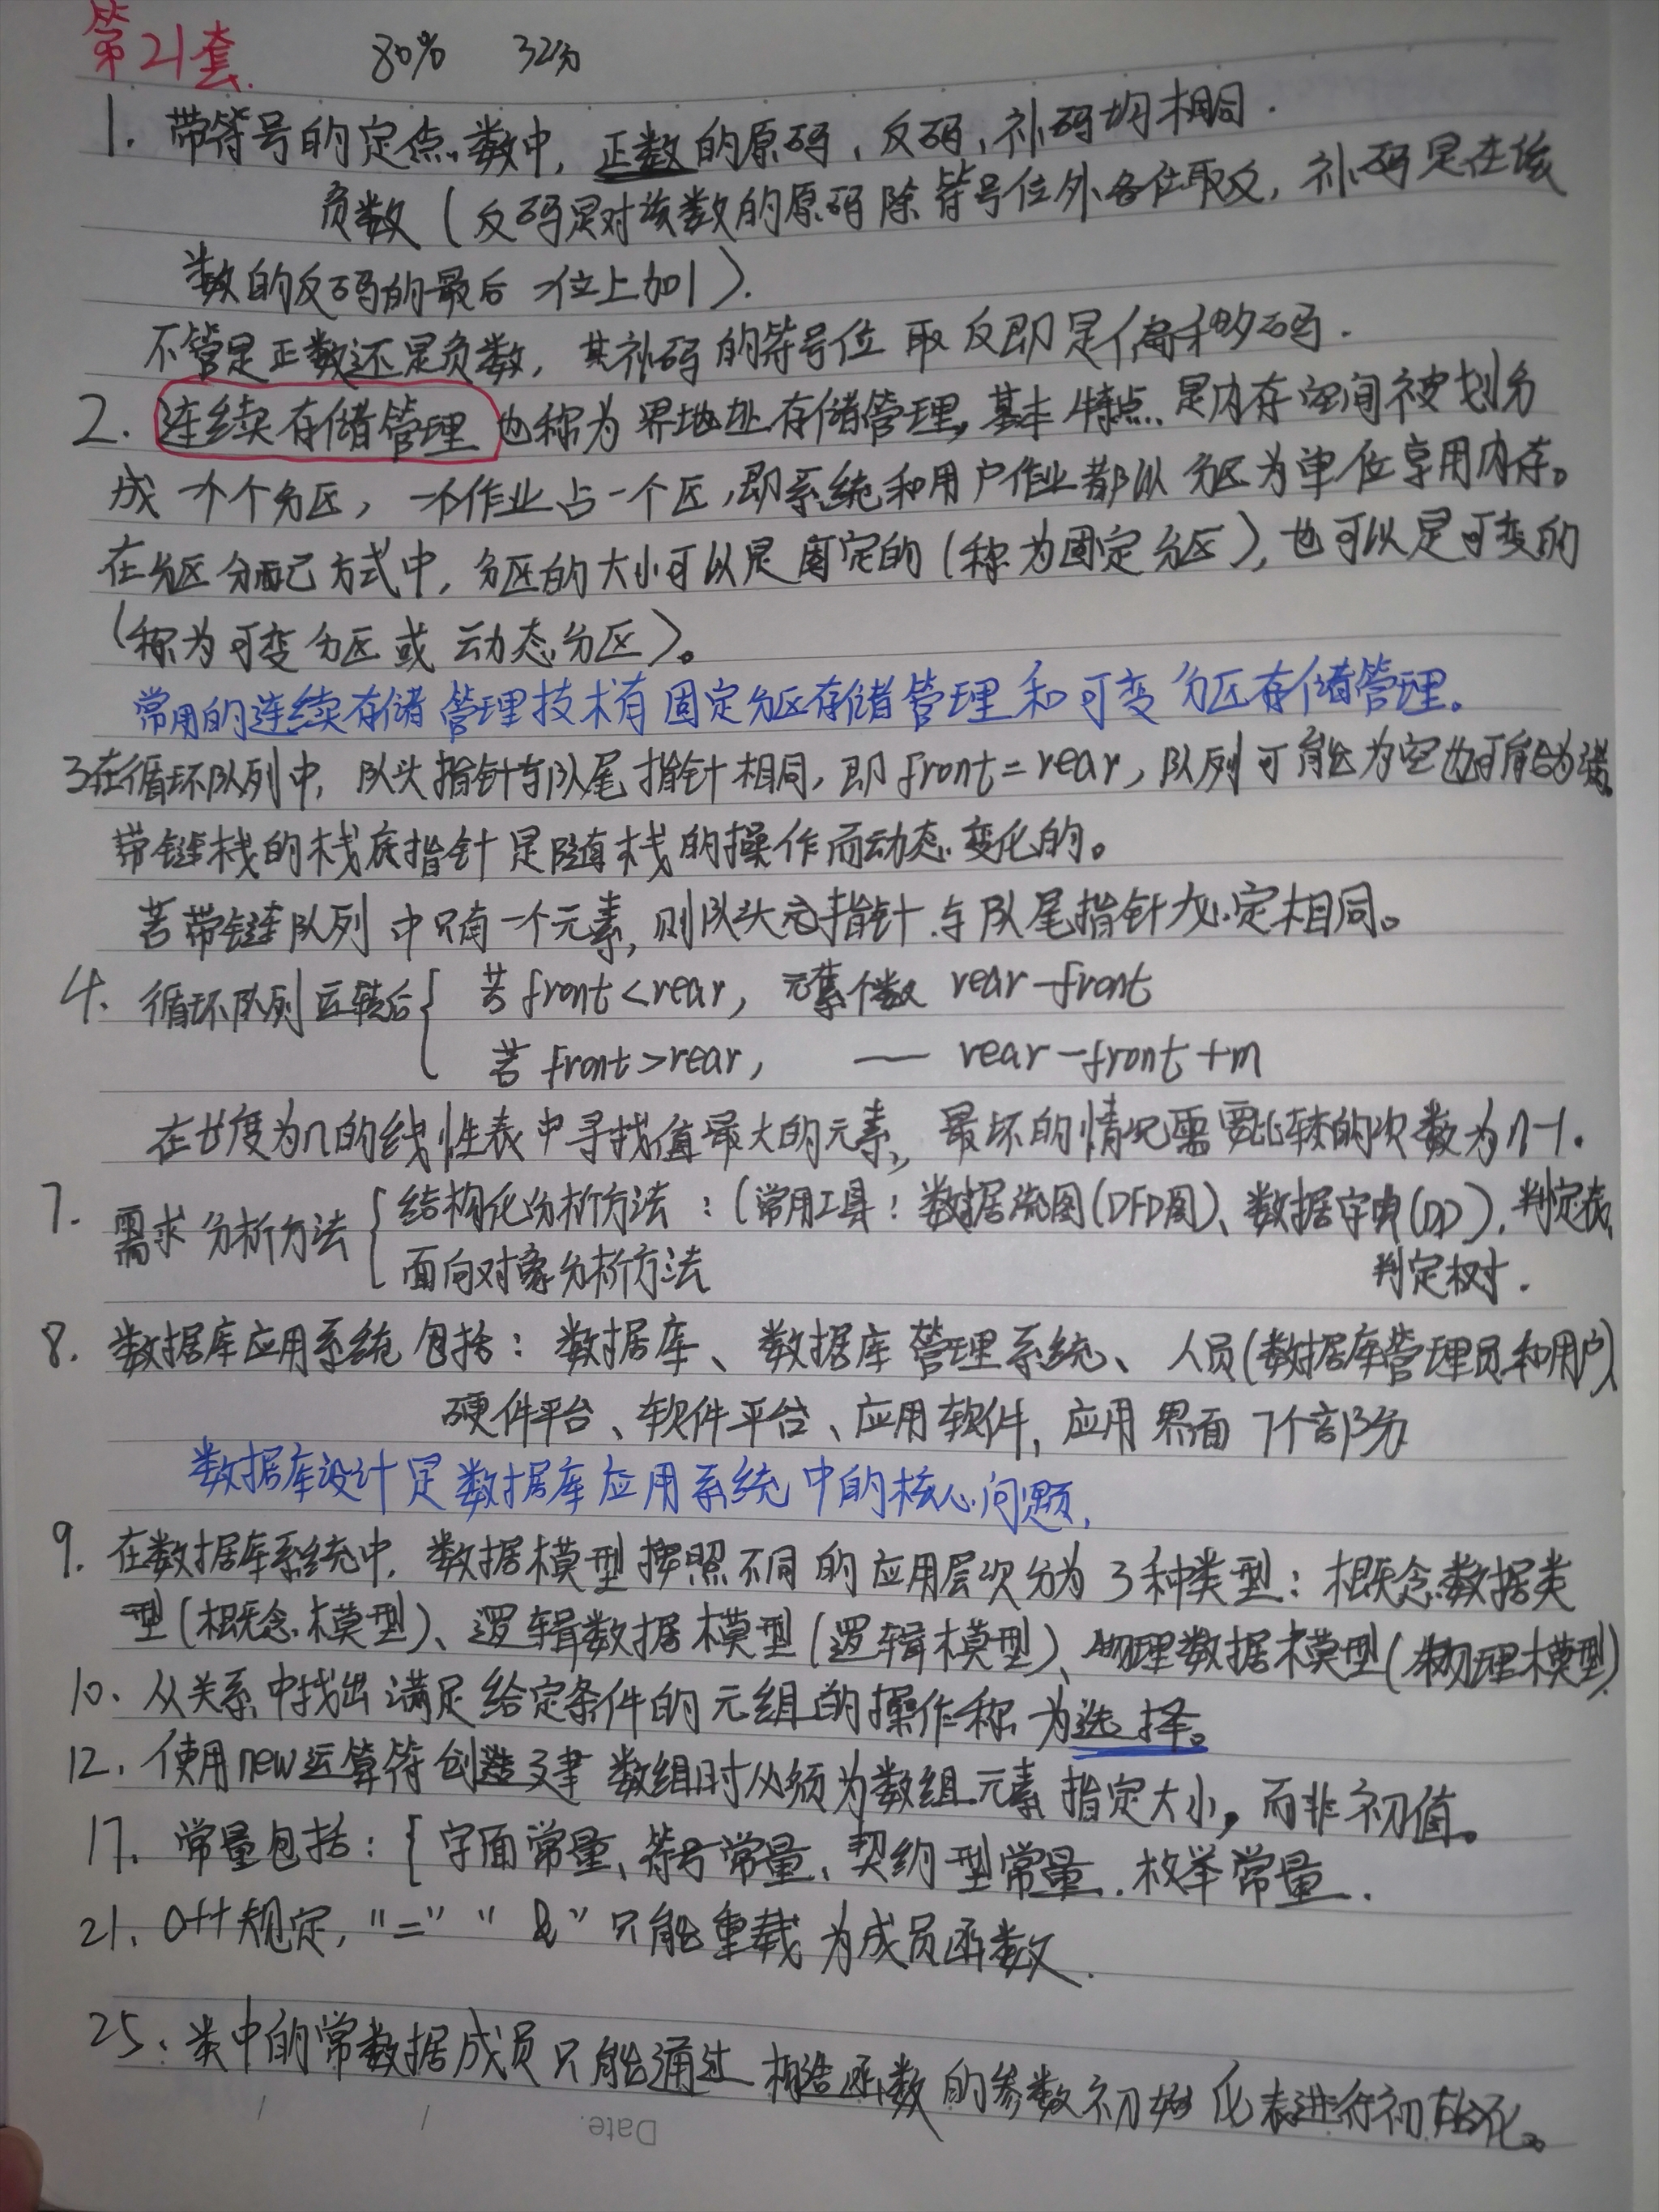 第21套. 80% 32分
1. 带符号的定点数中, 正数的原码、反码、补码均相同.
负数(反码是对该数的原码除符号位外各位取反, 补码是在该
数的反码的最后一位上加1).
不管是正数还是负数, 其补码的符号位取反即是偏移码.
2. 连续存储管理也称为界地址存储管理, 基本特点是内存空间被划分
成一个个分区, 一个作业占一个区, 即系统和用户作业都以分区为单位享用内存。
在分区分配方式中, 分区的大小可以是固定的(称为固定分区), 也可以是可变的
(称为可变分区或动态分区)。
常用的连续存储管理技术有固定分区存储管理和可变分区存储管理。
3在循环队列中, 队头指针与队尾指针相同, 即front=rear, 队列可能为空也可能为满。
带链栈的栈底指针是随栈的操作而动态变化的。
若带链队列中只有一个元素, 则队头指针与队尾指针必定相同。
4. 循环队列运转后{ 若front<rear, 元素个数 rear-front
若front>rear, — rear-front+m
在长度为n的线性表中寻找值最大的元素, 最坏的情况需要比较的次数为n-1.
7. 需求分析方法{ 结构化分析方法:(常用工具: 数据流图(DFD图)、数据字典(DD)、判定表、
面向对象分析方法 判定树.
8. 数据库应用系统包括: 数据库、数据库管理系统、人员(数据库管理员和用户)
硬件平台、软件平台、应用软件, 应用界面 7个部分
数据库设计是数据库应用系统中的核心问题.
9. 在数据库系统中, 数据模型按照不同的应用层次分为3种类型: 概念数据类
型(概念模型)、逻辑数据模型(逻辑模型)、物理数据模型(物理模型)
10. 从关系中找出满足给定条件的元组的操作称为选择。
12. 使用new运算符创建数组时必须为数组元素指定大小, 而非初值。
17. 常量包括: { 字面常量、符号常量、契约型常量、枚举常量.
21. C++规定, "=" "&" 只能重载为成员函数.
25. 类中的常数据成员只能通过构造函数的参数初始化表进行初始化。
Date.